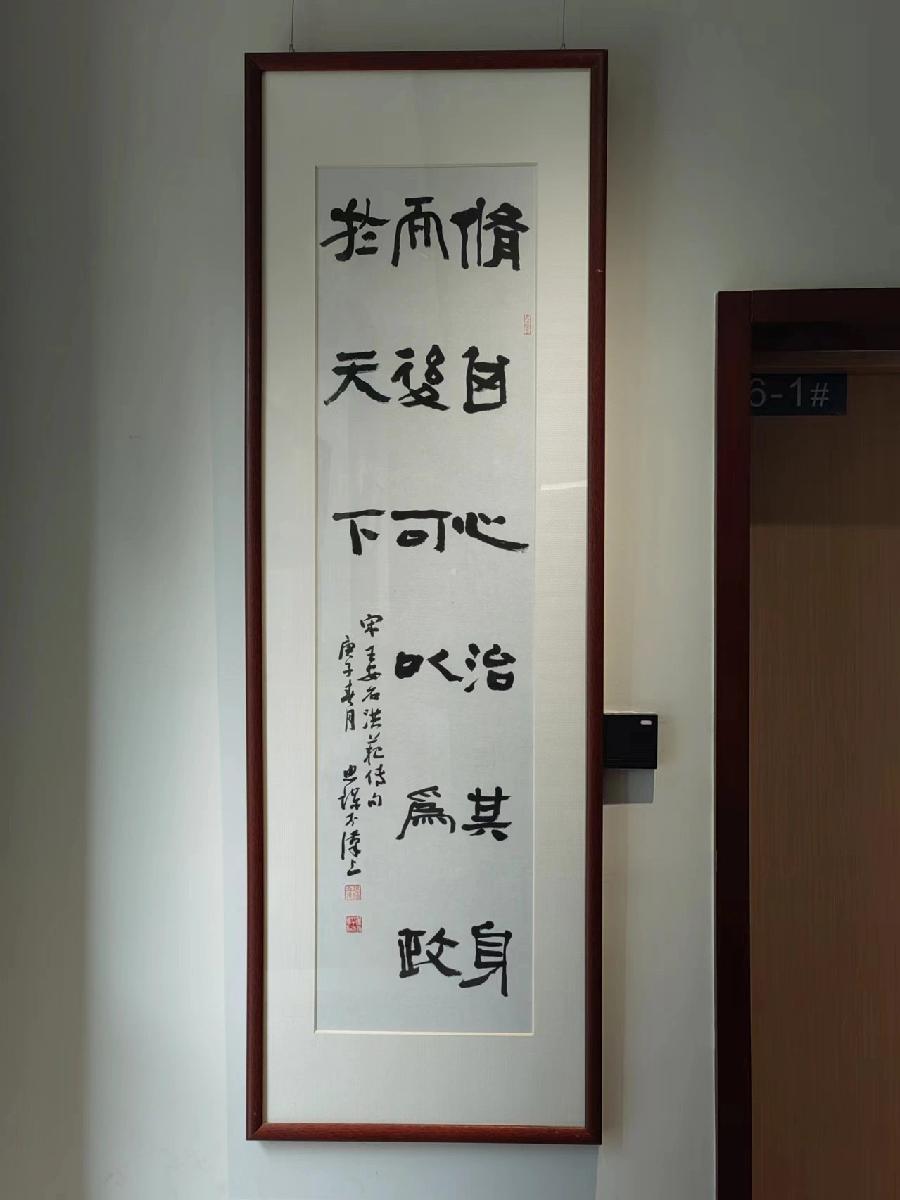 脩其心治其身
而後可以為政
於天下
宋王安石洪範傳句
庚子春月 漢上
6-1#